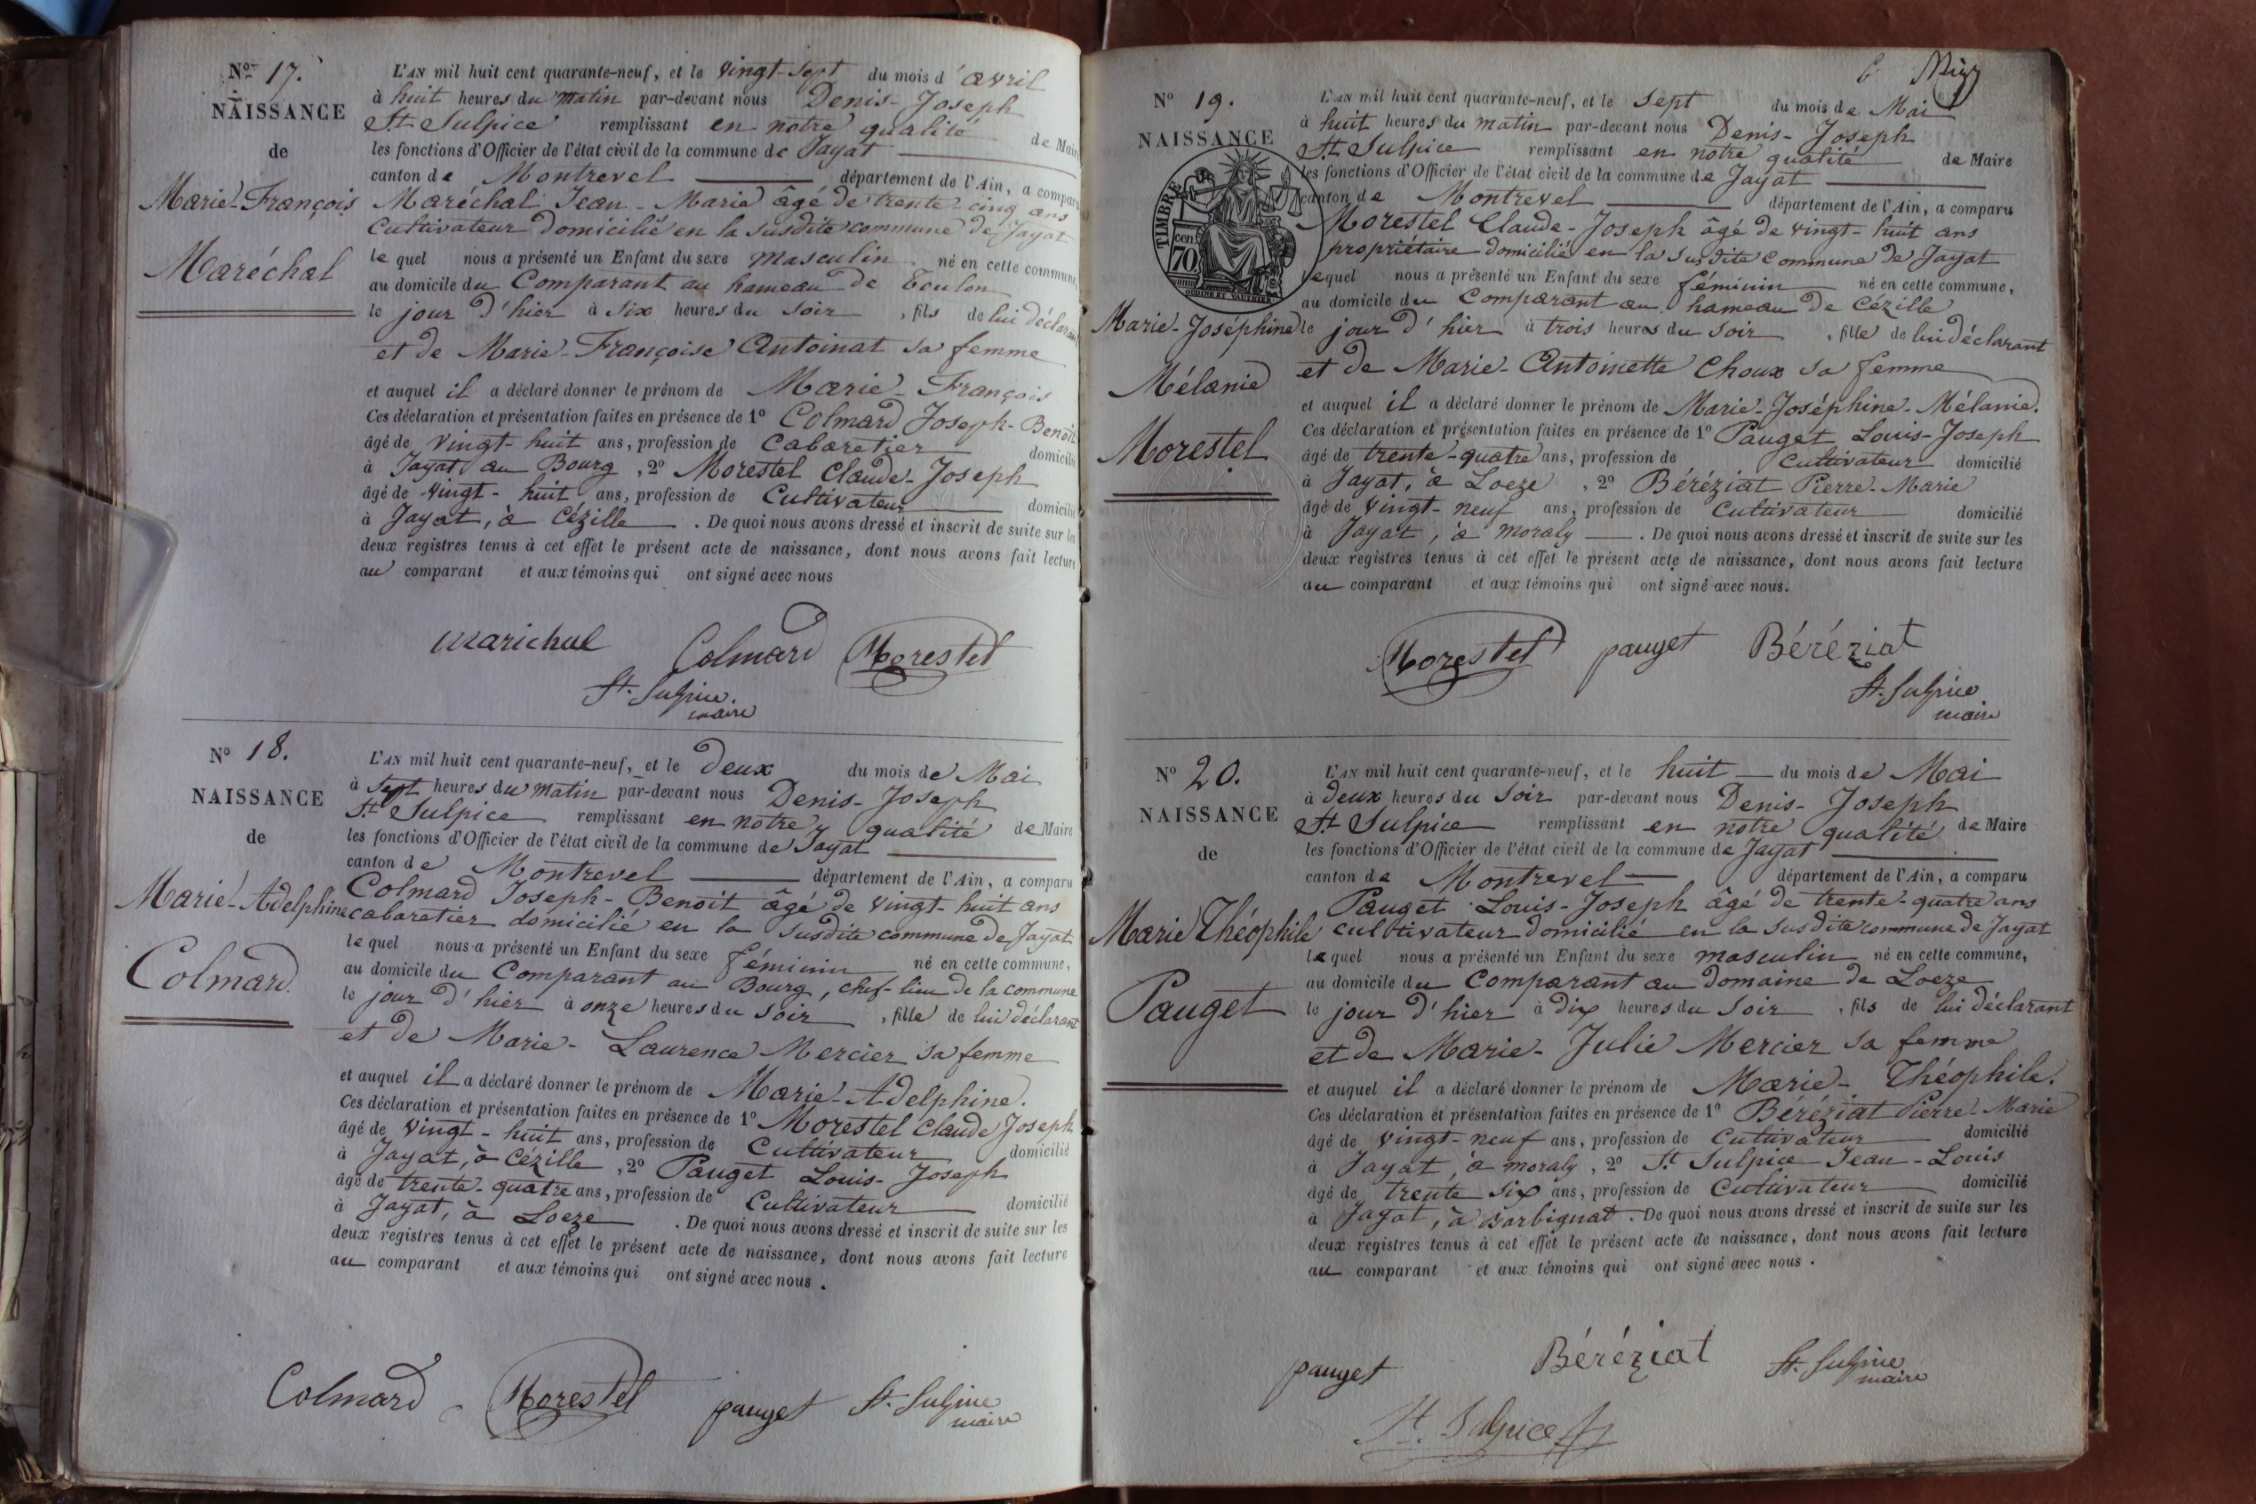 Nº 17.
NAISSANCE
de
Marie-François
Maréchal
L'AN mil huit cent quarante-neuf, et le vingt-sept du mois d'avril
à huit heures du matin par-devant nous Denis-Joseph
St Sulpice remplissant en notre qualité de Maire
les fonctions d'Officier de l'état civil de la commune de Jayat
canton de Montrevel département de l'Ain, a comparu
Maréchal Jean-Marie âgé de trente-cinq ans
Cultivateur domicilié en la susdite commune de Jayat
lequel nous a présenté un Enfant du sexe masculin né en cette commune
au domicile du Comparant au hameau de Toulon
le jour d'hier à six heures du soir, fils de lui déclarant
et de Marie-Françoise Antoinat sa femme
et auquel il a déclaré donner le prénom de Marie-François
Ces déclaration et présentation faites en présence de 1º Colmard Joseph-Benoit
âgé de vingt-huit ans, profession de Cabaretier domicilié
à Jayat au Bourg, 2º Morestel Claude-Joseph
âgé de vingt-huit ans, profession de Cultivateur domicilié
à Jayat, à Cézille. De quoi nous avons dressé et inscrit de suite sur les
deux registres tenus à cet effet le présent acte de naissance, dont nous avons fait lecture
au comparant et aux témoins qui ont signé avec nous
marichal Colmard Morestel
St. Sulpice
maire
Nº 18.
NAISSANCE
de
Marie-Adelphine
Colmard
L'AN mil huit cent quarante-neuf, et le deux du mois de Mai
à sept heures du matin par-devant nous Denis-Joseph
St Sulpice remplissant en notre qualité de Maire
les fonctions d'Officier de l'état civil de la commune de Jayat
canton de Montrevel département de l'Ain, a comparu
Colmard Joseph-Benoit âgé de vingt-huit ans
cabaretier domicilié en la susdite commune de Jayat
lequel nous a présenté un Enfant du sexe féminin né en cette commune,
au domicile du Comparant au Bourg, chef-lieu de la commune
le jour d'hier à onze heures du soir, fille de lui déclarant
et de Marie-Laurence Mercier sa femme
et auquel il a déclaré donner le prénom de Marie-Adelphine.
Ces déclaration et présentation faites en présence de 1º Morestel Claude Joseph
âgé de vingt-huit ans, profession de Cultivateur domicilié
à Jayat, à Cézille, 2º Pauget Louis-Joseph
âgé de trente-quatre ans, profession de Cultivateur domicilié
à Jayat, à Loeze. De quoi nous avons dressé et inscrit de suite sur les
deux registres tenus à cet effet le présent acte de naissance, dont nous avons fait lecture
au comparant et aux témoins qui ont signé avec nous.
Colmard Morestel pauget St. Sulpice
maire
6
Nº 19.
NAISSANCE
TIMBRE
cen
70
Marie-Joséphine
Mélanie
Morestel
L'AN mil huit cent quarante-neuf, et le sept du mois de Mai
à huit heures du matin par-devant nous Denis-Joseph
St Sulpice remplissant en notre qualité de Maire
les fonctions d'Officier de l'état civil de la commune de Jayat
canton de Montrevel département de l'Ain, a comparu
Morestel Claude-Joseph âgé de vingt-huit ans
propriétaire domicilié en la susdite commune de Jayat
lequel nous a présenté un Enfant du sexe féminin né en cette commune,
au domicile du Comparant au hameau de Cézille
le jour d'hier à trois heures du soir, fille de lui déclarant
et de Marie-Antoinette Choux sa femme
et auquel il a déclaré donner le prénom de Marie-Joséphine-Mélanie.
Ces déclaration et présentation faites en présence de 1º Pauget Louis-Joseph
âgé de trente-quatre ans, profession de Cultivateur domicilié
à Jayat, à Loeze, 2º Béréziat Pierre-Marie
âgé de vingt-neuf ans, profession de Cultivateur domicilié
à Jayat, à moraly. De quoi nous avons dressé et inscrit de suite sur les
deux registres tenus à cet effet le présent acte de naissance, dont nous avons fait lecture
au comparant et aux témoins qui ont signé avec nous.
Morestel pauget Béréziat
St. Sulpice
maire
Nº 20.
NAISSANCE
de
Marie Théophile
Pauget
L'AN mil huit cent quarante-neuf, et le huit du mois de Mai
à deux heures du soir par-devant nous Denis-Joseph
St Sulpice remplissant en notre qualité de Maire
les fonctions d'Officier de l'état civil de la commune de Jayat
canton de Montrevel département de l'Ain, a comparu
Pauget Louis-Joseph âgé de trente-quatre ans
cultivateur domicilié en la susdite commune de Jayat
lequel nous a présenté un Enfant du sexe masculin né en cette commune,
au domicile du Comparant au domaine de Loeze
le jour d'hier à dix heures du soir, fils de lui déclarant
et de Marie-Julie Mercier sa femme
et auquel il a déclaré donner le prénom de Marie-Théophile.
Ces déclaration et présentation faites en présence de 1º Béréziat Pierre-Marie
âgé de vingt-neuf ans, profession de Cultivateur domicilié
à Jayat, à moraly, 2º St Sulpice Jean-Louis
âgé de trente six ans, profession de Cultivateur domicilié
à Jayat, à Barbignat. De quoi nous avons dressé et inscrit de suite sur les
deux registres tenus à cet effet le présent acte de naissance, dont nous avons fait lecture
au comparant et aux témoins qui ont signé avec nous.
pauget Béréziat St. Sulpice
maire
St. Sulpice